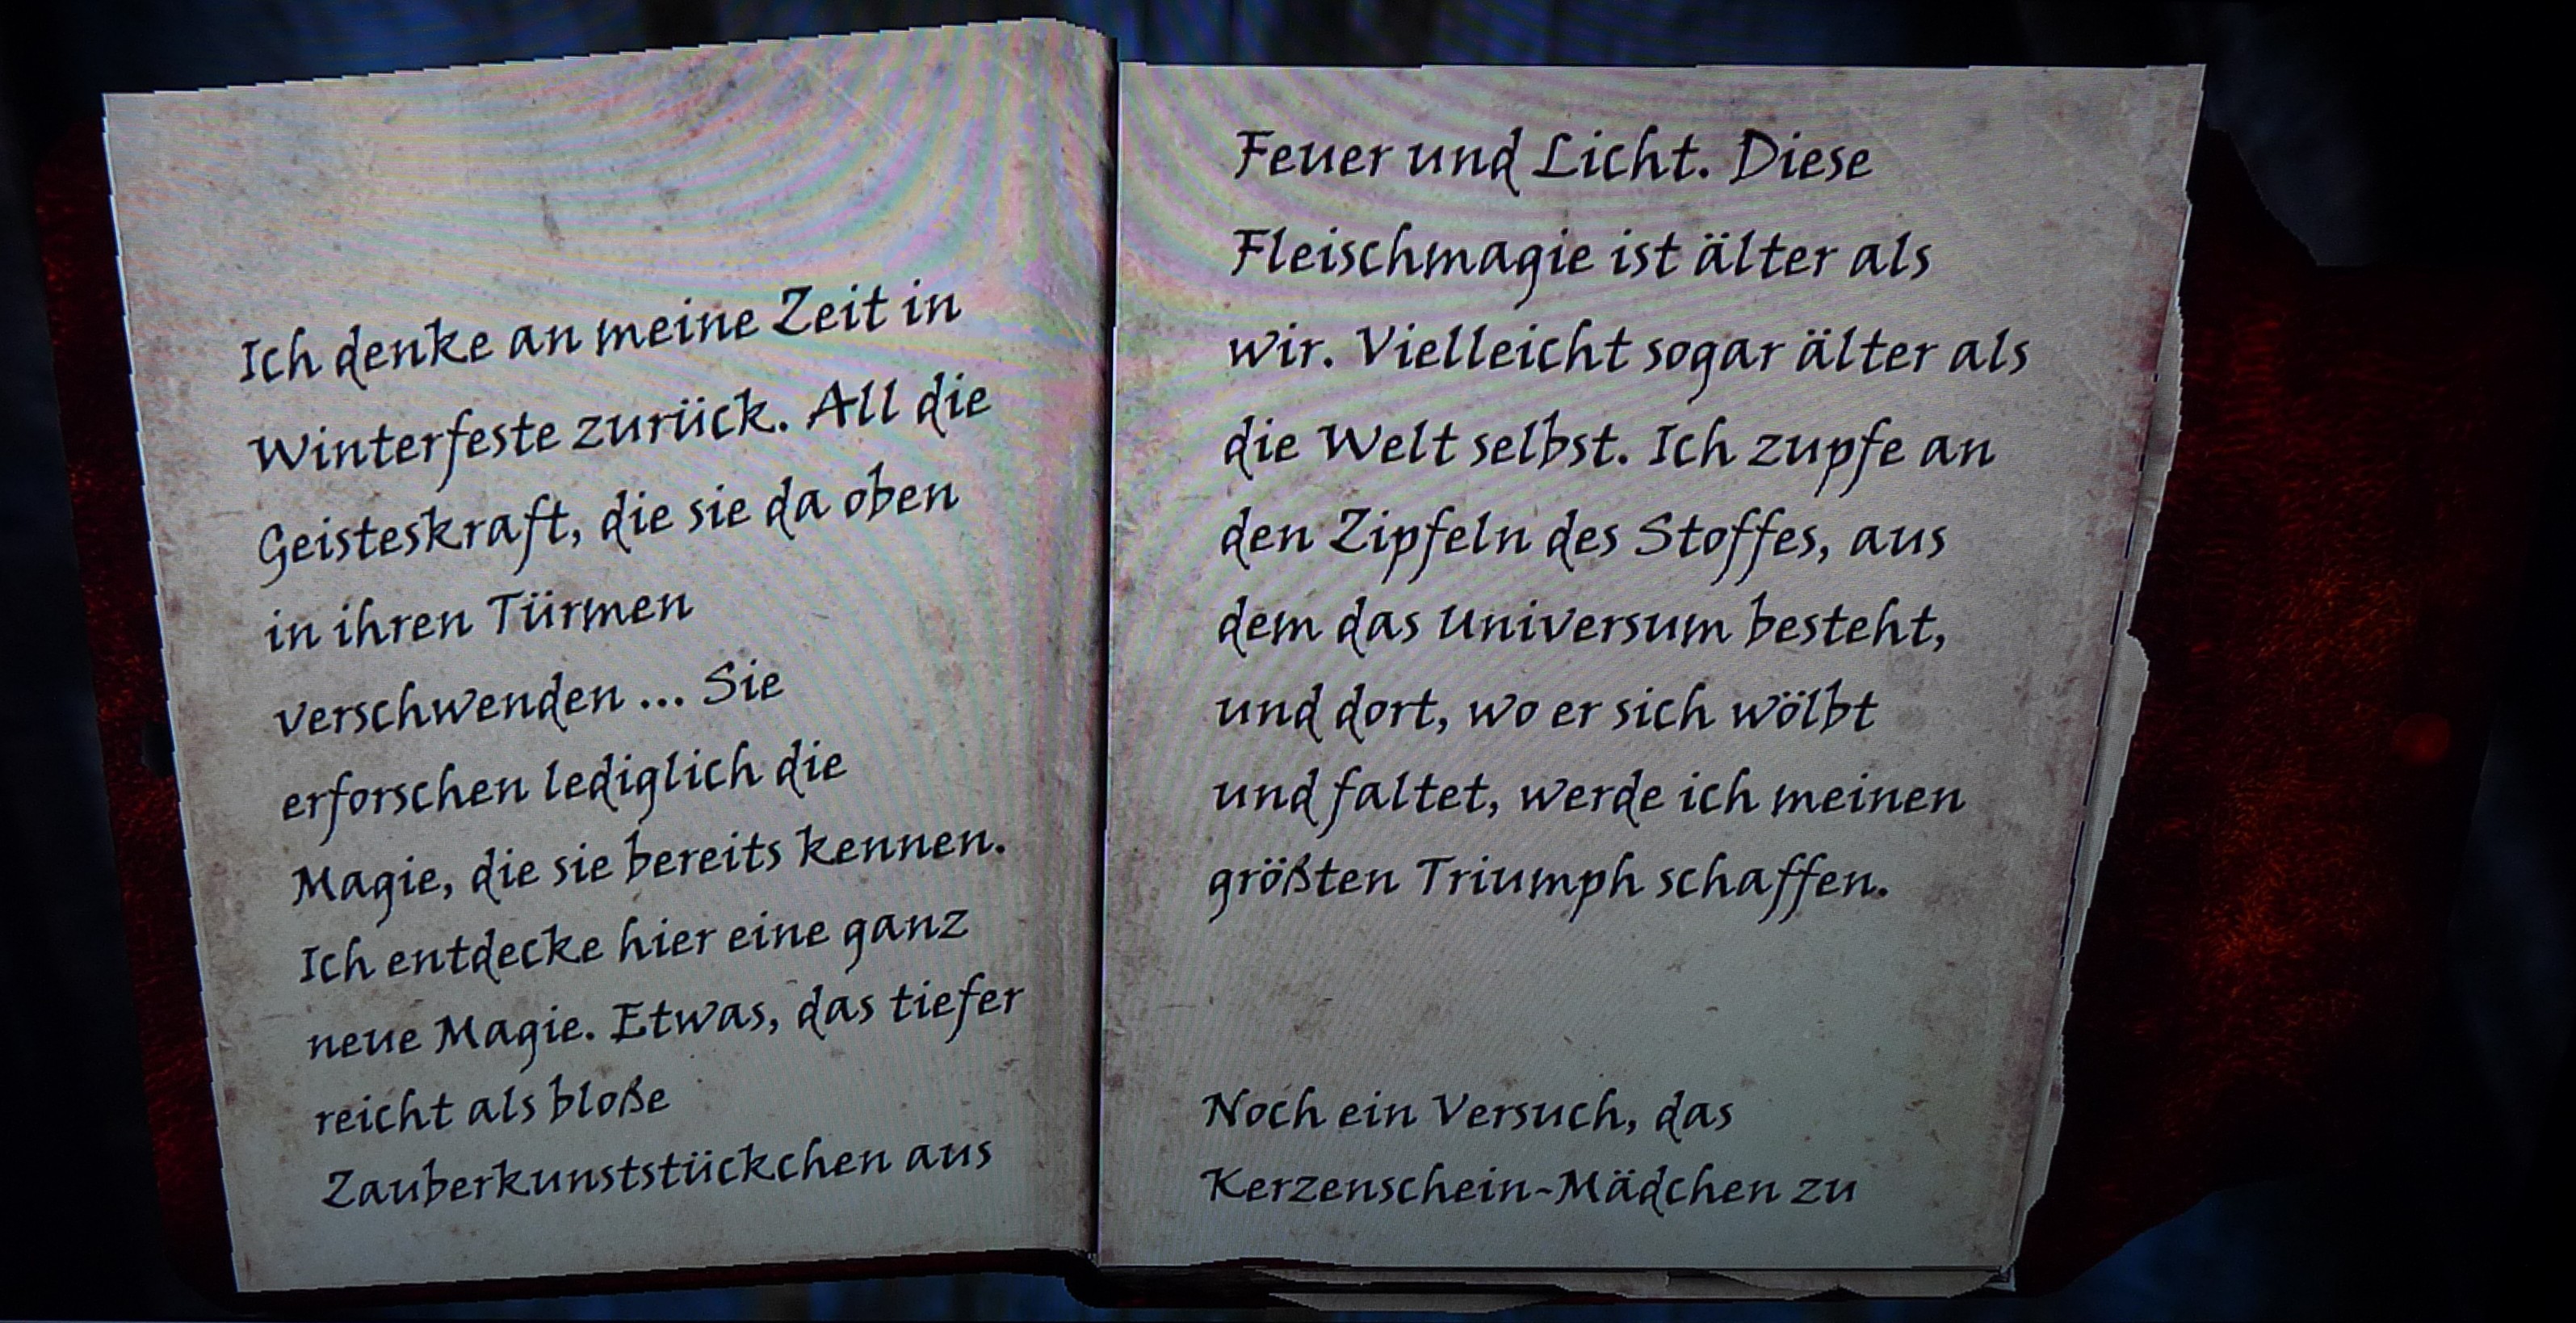 Ich denke an meine Zeit in
Winterfeste zurück. All die
Geisteskraft, die sie da oben
in ihren Türmen
verschwenden ... Sie
erforschen lediglich die
Magie, die sie bereits kennen.
Ich entdecke hier eine ganz
neue Magie. Etwas, das tiefer
reicht als bloße
Zauberkunststückchen aus
Feuer und Licht. Diese
Fleischmagie ist älter als
wir. Vielleicht sogar älter als
die Welt selbst. Ich zupfe an
den Zipfeln des Stoffes, aus
dem das Universum besteht,
und dort, wo er sich wölbt
und faltet, werde ich meinen
größten Triumph schaffen.
Noch ein Versuch, das
Kerzenschein-Mädchen zu